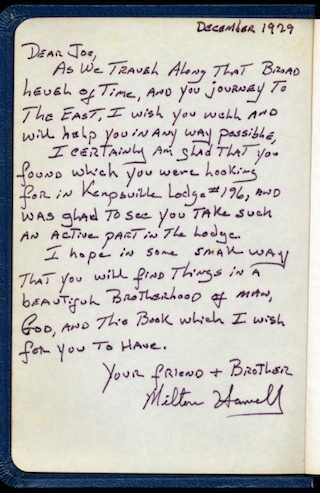 DECEMBER 1979
DEAR JOE,
As We TRAVEL ALONG THAT BROAD
LEVEL of TIME, AND you JOURNEY TO
THE EAST, I wish you well AND
will help you in ANY WAY possible,
I CERTAINLY Am glad THAT you
found which you were looking
for in Kempsville Lodge #196, AND
WAS glad To see you TAKE such
AN ACTIVE PART in The Lodge.
I hope in some small way
THAT you will find THings in A
beautiful BROTHERHOOD of MAN,
GOD, AND This Book which I wish
for you To HAVE.
YOUR friend + BROTHER
Milton